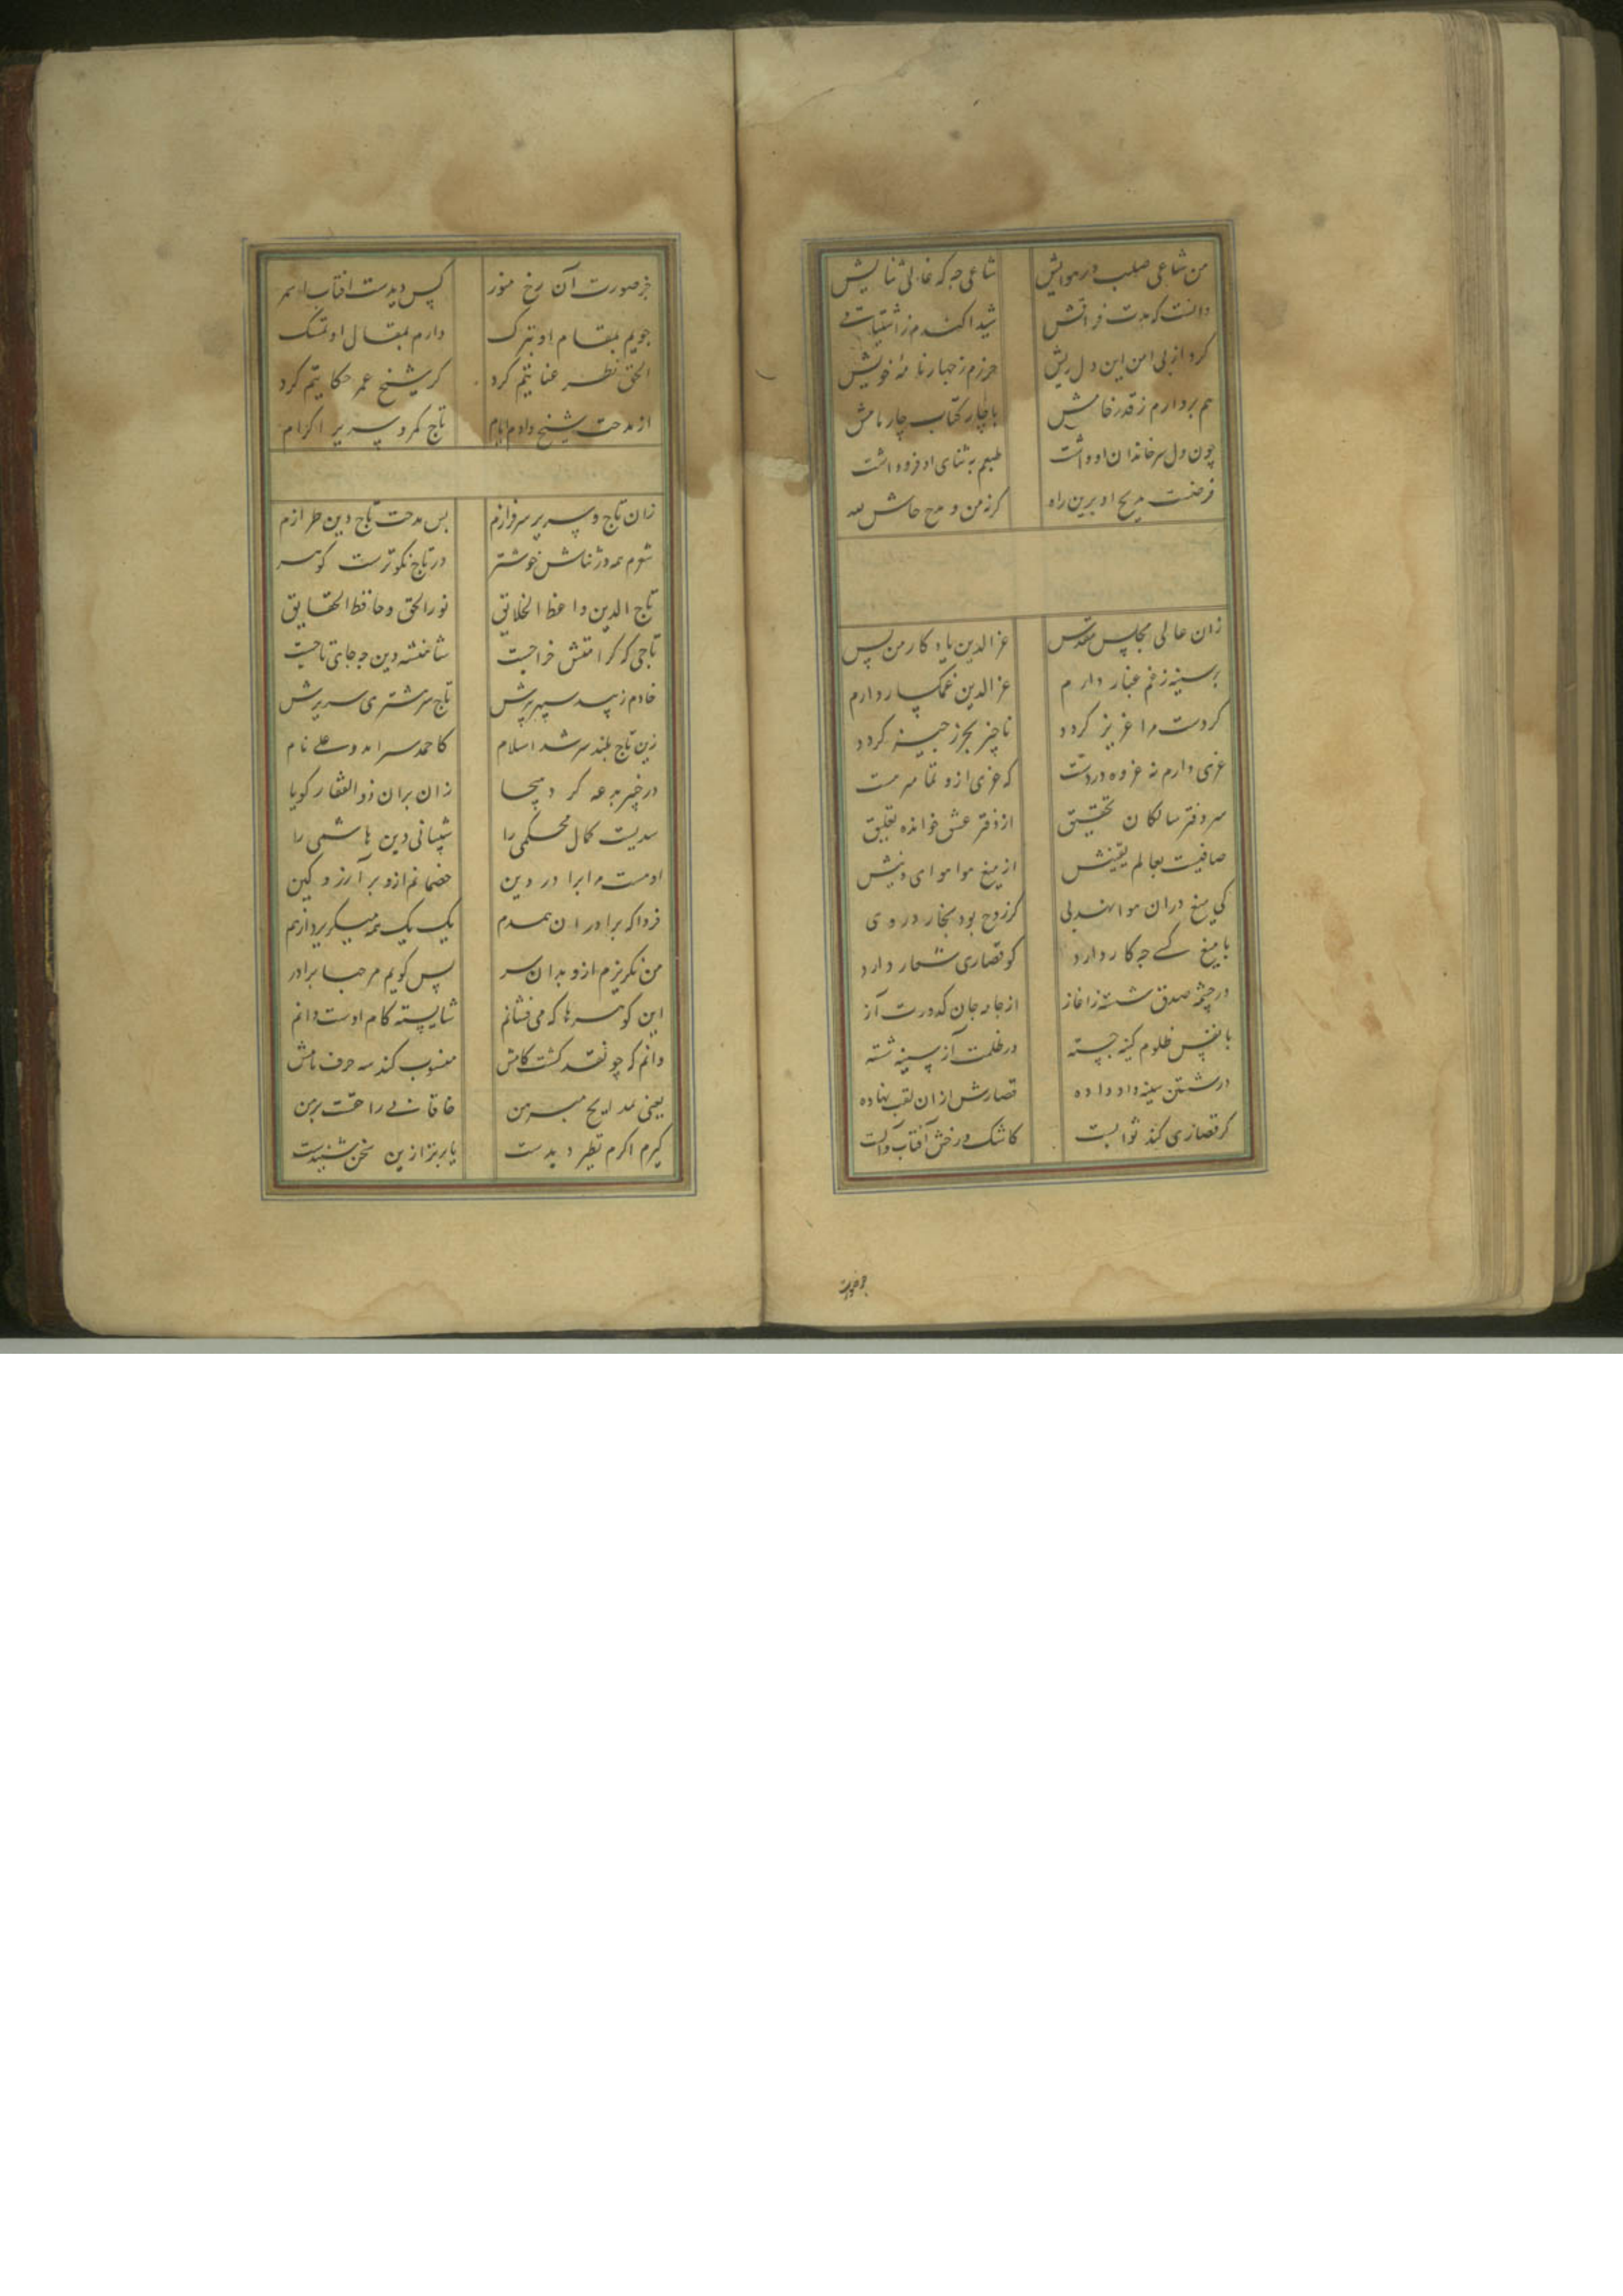 من شافعی صلب در هوایش شافعی چه که غالی ثنایش
دانست که مدت فراقش شیدا کندم ز اشتیاقش
کرد از پی امن این دل ریش حرزم ز چهار نامهٔ خویش
هم بردارم ز قدر خامش با چار کتاب چار نامش
چون دل سر خاندان او داشت طبعم به ثنای او فرو داشت
فرضست مدیح او برین راه کرنه من و مدح حاش لله
زان عالی مجلس مقدس عز الدین یادکار من بس
بر سینه ز غم غبار دارم عز الدین غمکسار دارم
کردست مرا عزیز کردد ناچیز بجز ز چیز کردد
عزی دارم نه عزوه در دست که عزی ازو تمامرمت
سر دفتر سالکان تحقیق از دفتر عشق خوانده تعلیق
صافیست بعالم یقینش از میغ هوا هوای دینش
کی میغ در ان هوا نهد پی کز روح بود بخار در وی
با میغ کسی چه کار دارد کو قصاری شعار دارد
در چشمه صدق شسته ز اغاز از جامه جان کدورت آز
با نفس ظلوم کینه جسته در ظلمت از سینه شسته
در شستن سینه داد داده قصارش از ان لقب نهاده
کر قصاری کند ثوابست کاشک و رخش آفتاب و آبست
جز صورت
جز صورت آن رخ منور کس دیدست افتاب اسمر
جویم بمقام او تبرک دارم بمقال او تمسک
الحق نظر عنایتم کرد کز شیخ عمر حکایتم کرد
از مدحت شیخ دادم ایام تاج کمر و سریر اکرام
زان تاج و سریر سرفرازم بس مدحت تاج دین طرازم
شعرم همه در ثناش خوشتر در تاج نکوترست کوهر
تاج الدین واعظ الخلایق نور الحق و حافظ الحقایق
تاجی که کرامتش خراجست شاهنشه دین چه جای تاجست
خادم زپید سپهر پیرش تاج سر مشتری سریرش
زین تاج بلند سر شد اسلام کاحمد سر امد و علی نام
در خیبر بدعه کرد هیجا زان بران ذوالفقار کویا
سدیست کمال محکمی را پشتیبانی دین هاشمی را
اوست مرا برادر دین خصمانم ازو بر آرزو کین
فردا که برادران همدم یک یک همه میکریزد از هم
من نکریزم ازو بدان سر پس کویم مرحبا برادر
این کوهرها که می‌فشانم شایسته کام اوست دانم
دانم که چو نقد کشت کامش منسوب کند سه حرف نامش
یعنی بمدایح مبرهن خاقانی را حقست بر من
کیرم اکرم نظیر دیدست یا برتر ازین سخن شنیدست